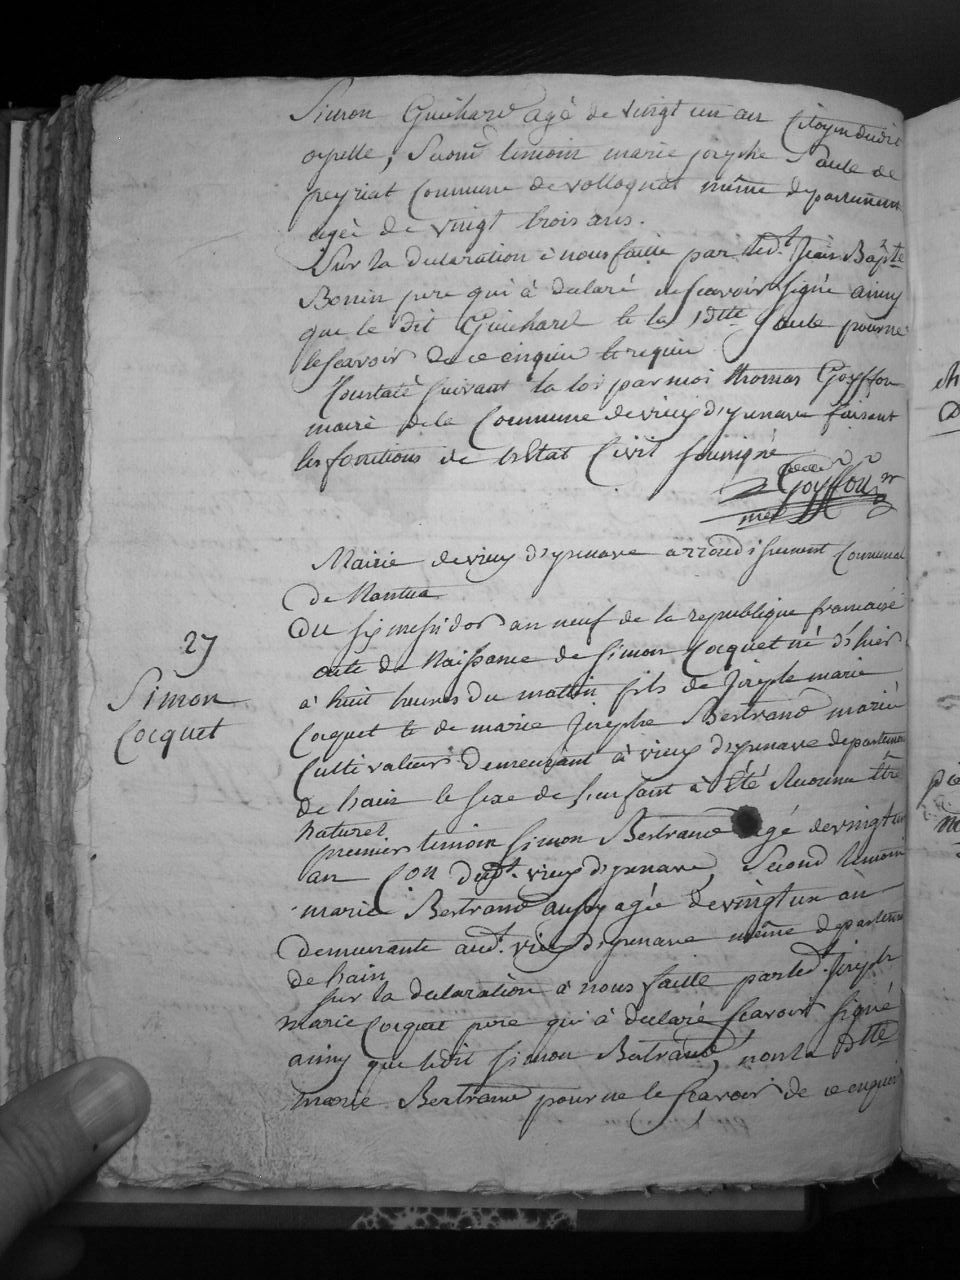 Simon Guichard agé de vingt un an Citoyen dudit
opelle, Second temoin marie josephe Saule de
peyriat Commune de vollognat même departement
agée de vingt trois ans.
Sur la declaration à nous faitte par led.t Jean Bapte
Bonin pere qui à declaré ne scavoir signé ainsy
que le dit Guichard et la ditte Saule pour ne
le scavoir de ce enquis et requis
Constaté Suivant la loi par moi thomas Goyffon
maire de la Commune de vieux d'yzenave faisant
les fonctions de l'etat Civil soussigné
Goyffon
mer
Mairie de vieux d'yzenave arrondissement Communal
de Nantua
Du six messidor an neuf de la republique francaise
27
acte de Naissance de Simon Cocquet né d'hier
à huit heures du matin fils de Joseph marie
Simon
Cocquet
Cocquet et de marie Josephe Bertrand marié
Cultivateurs demeurant à vieux d'yzenave departement
de Lain le sexe de l'enfant à été reconnu être
naturel
premier temoin Simon Bertrand agé de vingt un
an Con dudt. vieux d'yzenave, Second temoin
marie Bertrand aussy agée de vingt un an
demeurante aud.t vieux d'yzenave même departement
de Lain
sur la declaration à nous faitte par led.t Joseph
marie Cocquet pere qui à declaré scavoir signé
ainsy que ledit Simon Bertrand, non la ditte
marie Bertrand pour ne le scavoir de ce enquis